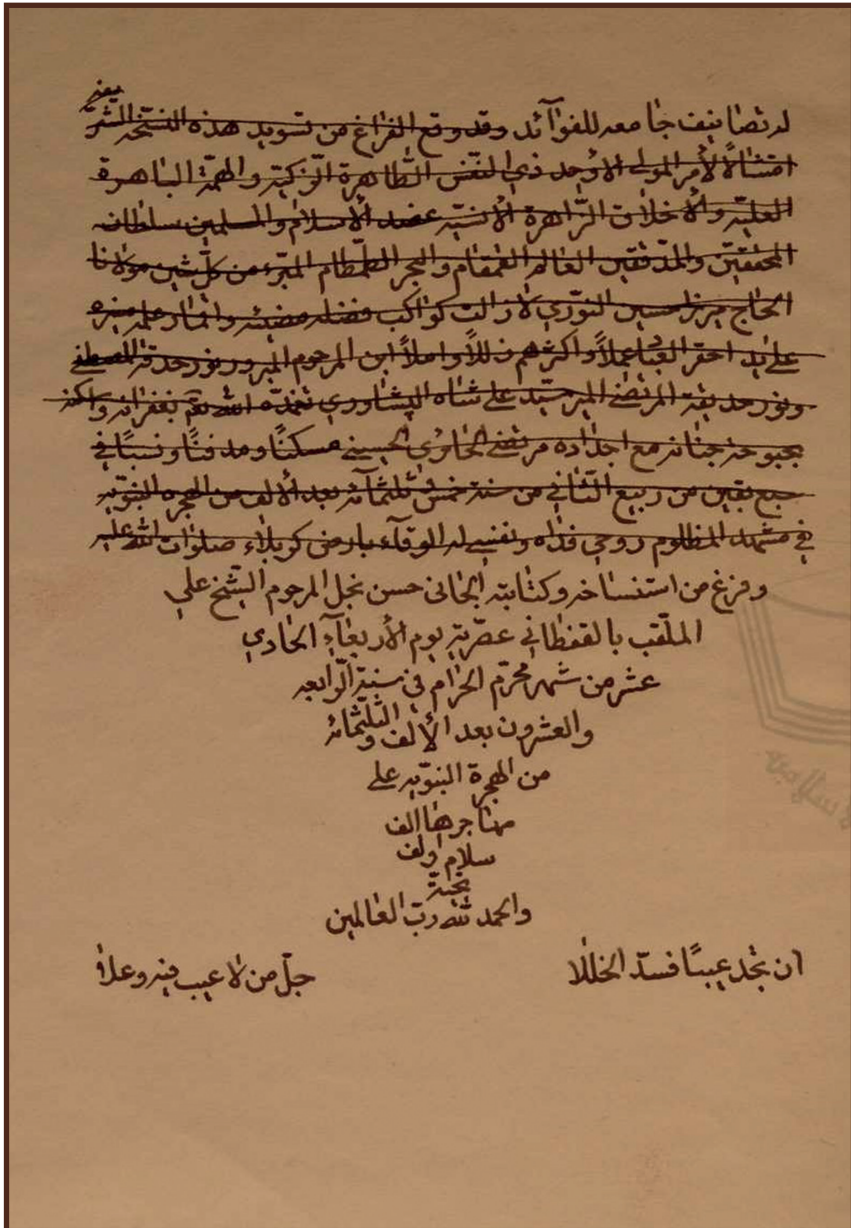 له تصانيف جامعه للفوآئد وقد وقع الفراغ من تسويد هذه النسخة الشريفة
امتثالاً لأمر المولى الاوحد ذي النفس الطاهرة الزكية والهمة الباهرة
العلية والأخلاق الزاهرة الأنسية عضد الأسلام والمسلمين سلطان
المحققين والمدققين العالم القمقام والبحر الطمطام المبرء من كل شين مولانا
الحاج ميرزا حسين النوري لا زالت كواكب فضله مضيئة واثمار علمه
على يد احقر العباد عملاً واكثرهم زللاً واملاً ابن المرحوم المبرور نور حدقة المصطفى
ونور حديقة المرتضى المير سيد علي شاه الپشاوري تغمده الله تعم بغفرانه واسكنه
بحبوحة جنانه مع اجداده مرتضى الحسيني مسكناً ومدفناً ونسباً في
سبع بقين من ربيع الثاني من سنة خمس وثلثمآئة بعد الألف من الهجرة النبوية
في مشهد المظلوم روحي فداه ونفسي له الوقآء بارض كربلاء صلوات الله عليه
وفرغ من استنساخه وكتابته الجاني حسن نجل المرحوم الشيخ علي
الملقب بالقفطاني عصرية يوم الأربعآء الحادي
عشر من شهر محرم الحرام في سنة الرابعه
والعشرون بعد الألف والثلثمائة
من الهجرة النبويه على
مهاجرها الف
سلام والف
تحية
والحمد لله رب العالمين
ان تجد عيباً فسد الخللا جل من لا عيب فيه وعلا
اسلامى